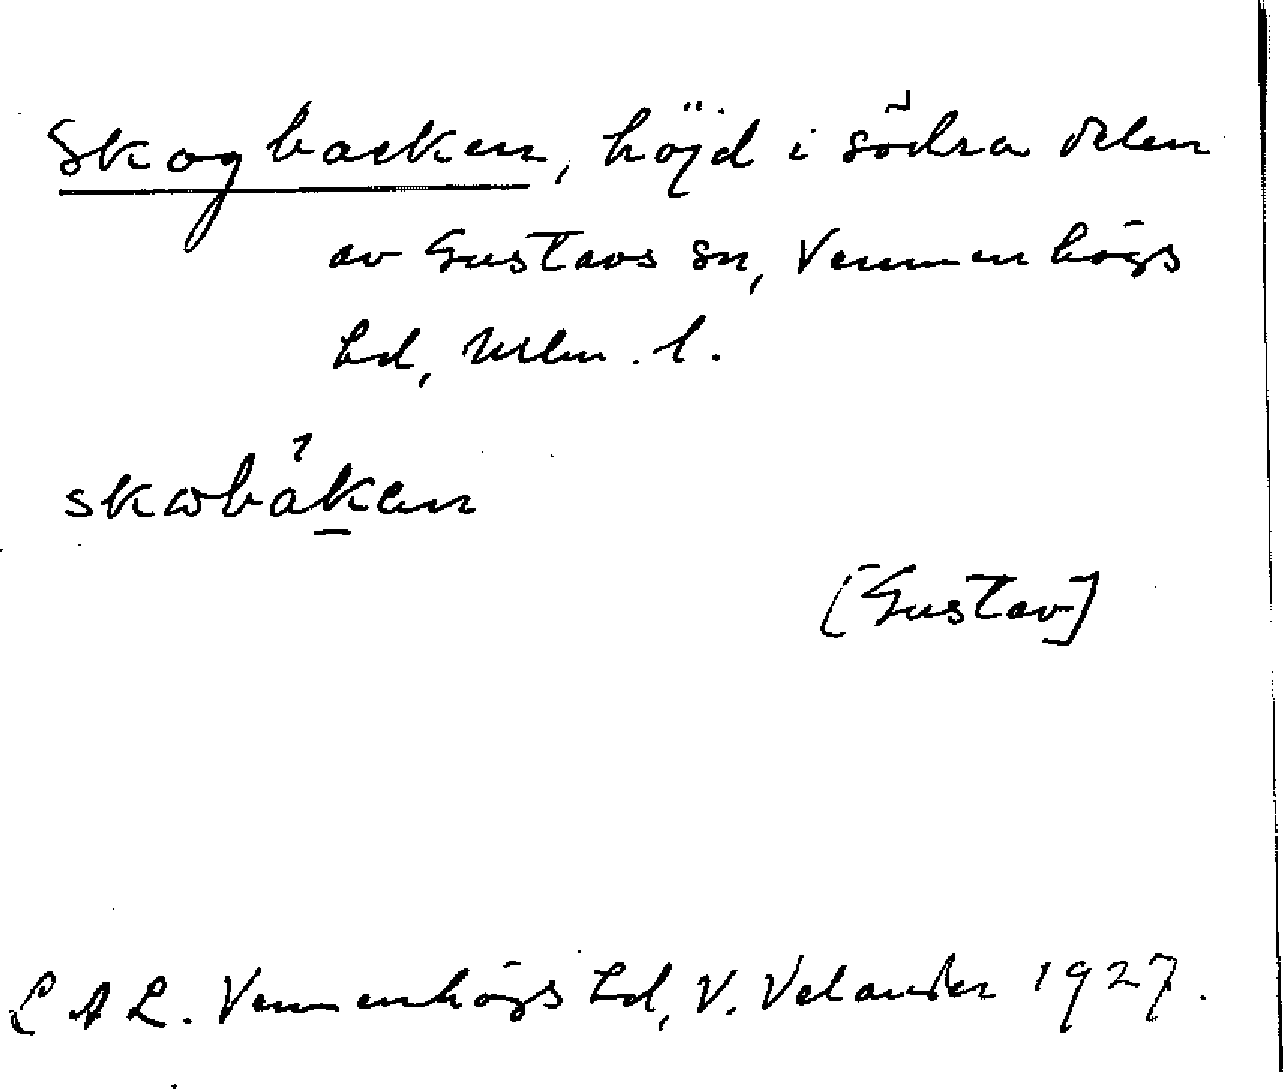 Skogbacken, höjd i södra delen
av Gustavs sn, Vemmenhögs
hd, Mlm. l.
skωbákan
[Gustav]
LAL. Vemmenhögs hd, V. Velander 1927.